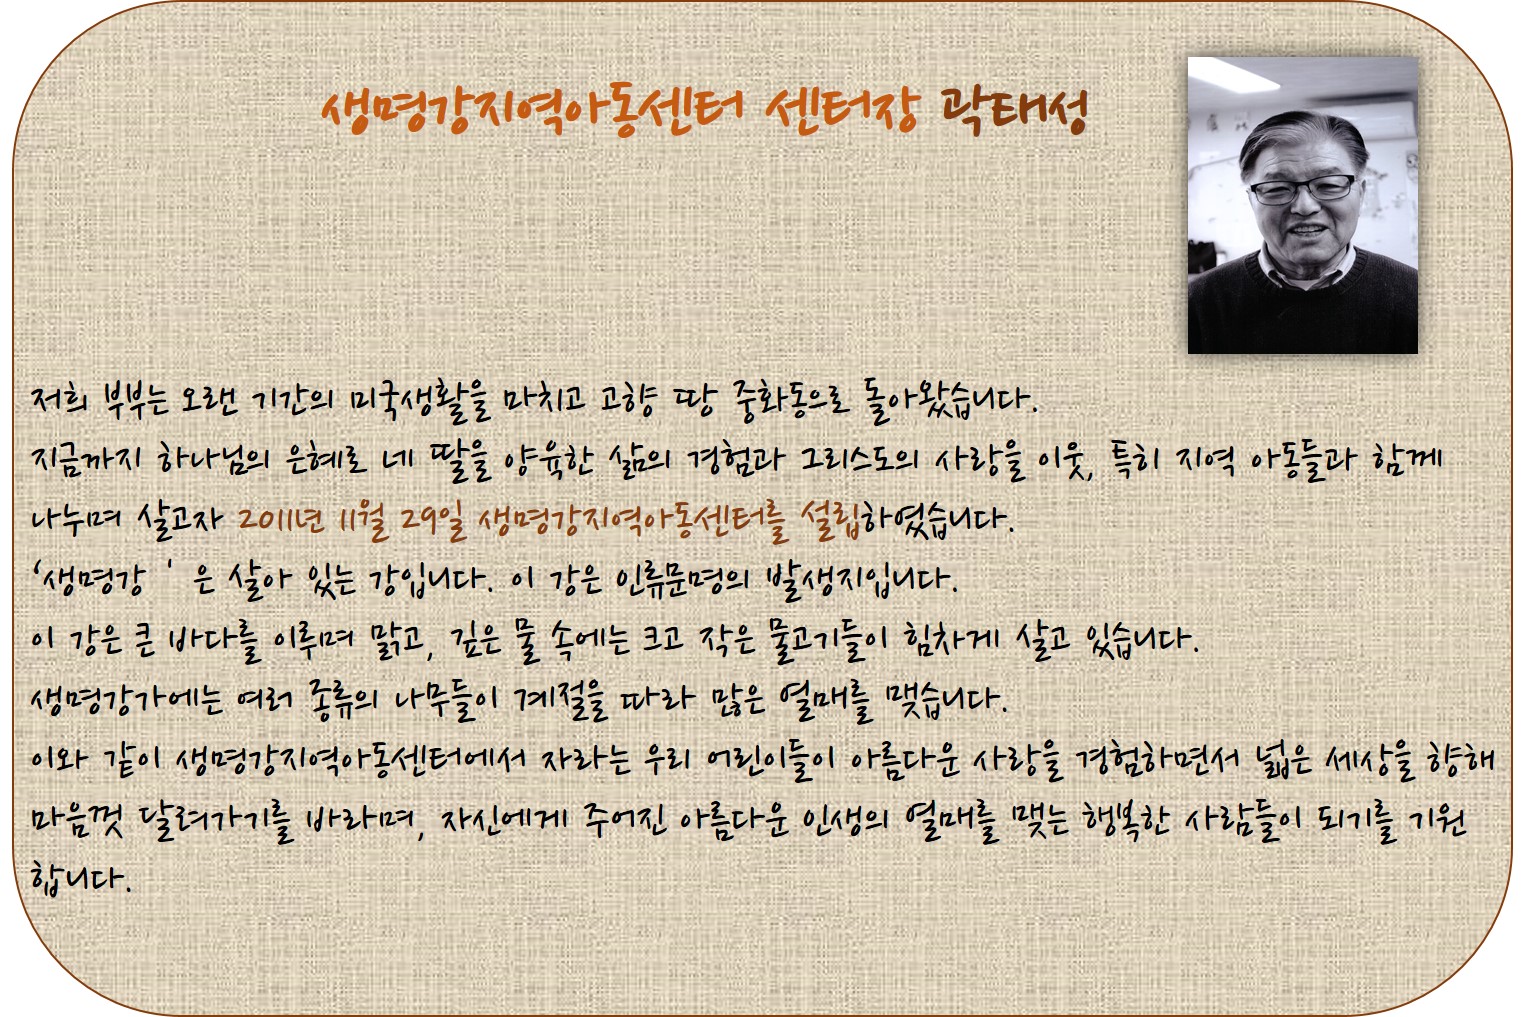 생명강지역아동센터 센터장 곽태성
저희 부부는 오랜 기간의 미국생활을 마치고 고향 땅 중화동으로 돌아왔습니다.
지금까지 하나님의 은혜로 네 딸을 양육한 삶의 경험과 그리스도의 사랑을 이웃, 특히 지역 아동들과 함께
나누며 살고자 2011년 11월 29일 생명강지역아동센터를 설립하였습니다.
‘생명강 ’ 은 살아 있는 강입니다. 이 강은 인류문명의 발생지입니다.
이 강은 큰 바다를 이루며 맑고, 깊은 물 속에는 크고 작은 물고기들이 힘차게 살고 있습니다.
생명강가에는 여러 종류의 나무들이 계절을 따라 많은 열매를 맺습니다.
이와 같이 생명강지역아동센터에서 자라는 우리 어린이들이 아름다운 사랑을 경험하면서 넓은 세상을 향해
마음껏 달려가기를 바라며, 자신에게 주어진 아름다운 인생의 열매를 맺는 행복한 사람들이 되기를 기원
합니다.